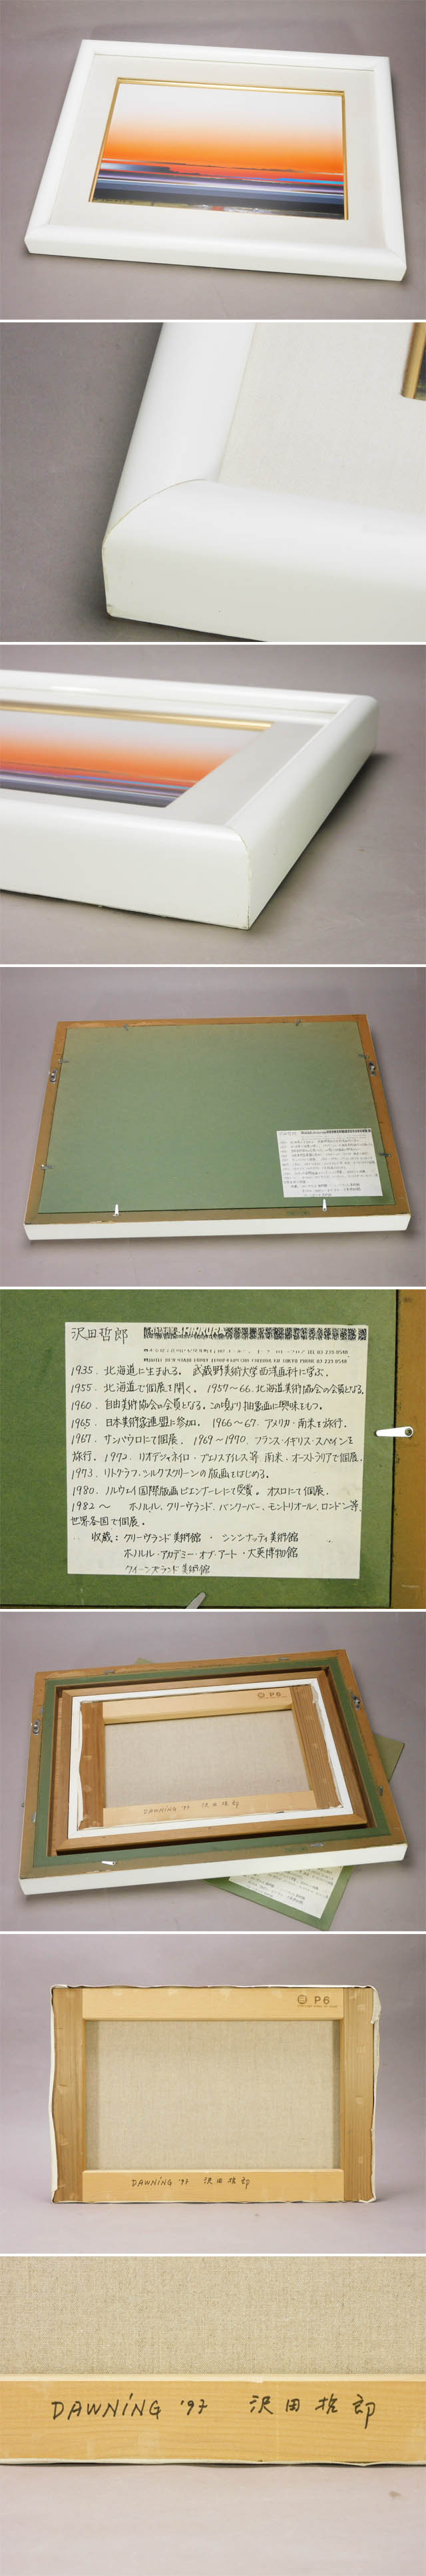 沢田哲郎
TEL 03 239 0548
1935. 北海道に生まれる。 武蔵野美術大学西洋画科に学ぶ。
1955. 北海道で個展を開く。 1957〜66. 北海道美術協会の会員となる。
1960. 自由美術協会の会員となる。この頃より抽象画に興味をもつ。
1965. 日本美術家連盟に参加。 1966〜67. アメリカ・南米を旅行。
1967. サンパウロにて個展. 1969〜1970. フランス・イギリス・スペインを
旅行. 1972. リオデジャネイロ・ブエノスアイレス等 南米、オーストラリアで個展.
1973. リトグラフ・シルクスクリーンの版画をはじめる。
1980. ノルウェイ国際版画ビエンナーレにて受賞。 オスロにて個展.
1982〜 ホノルル、クリーヴランド、バンクーバー、モントリオール、ロンドン等、
世界各国で個展.
収蔵: クリーヴランド美術館 ・ シンシナッティ美術館
ホノルル・アカデミー・オブ・アート ・大英博物館
クイーンズランド美術館
P6
DAWNiNG '97 沢田哲郎
P6
DAWNiNG '97 沢田哲郎
DAWNiNG '97 沢田哲郎